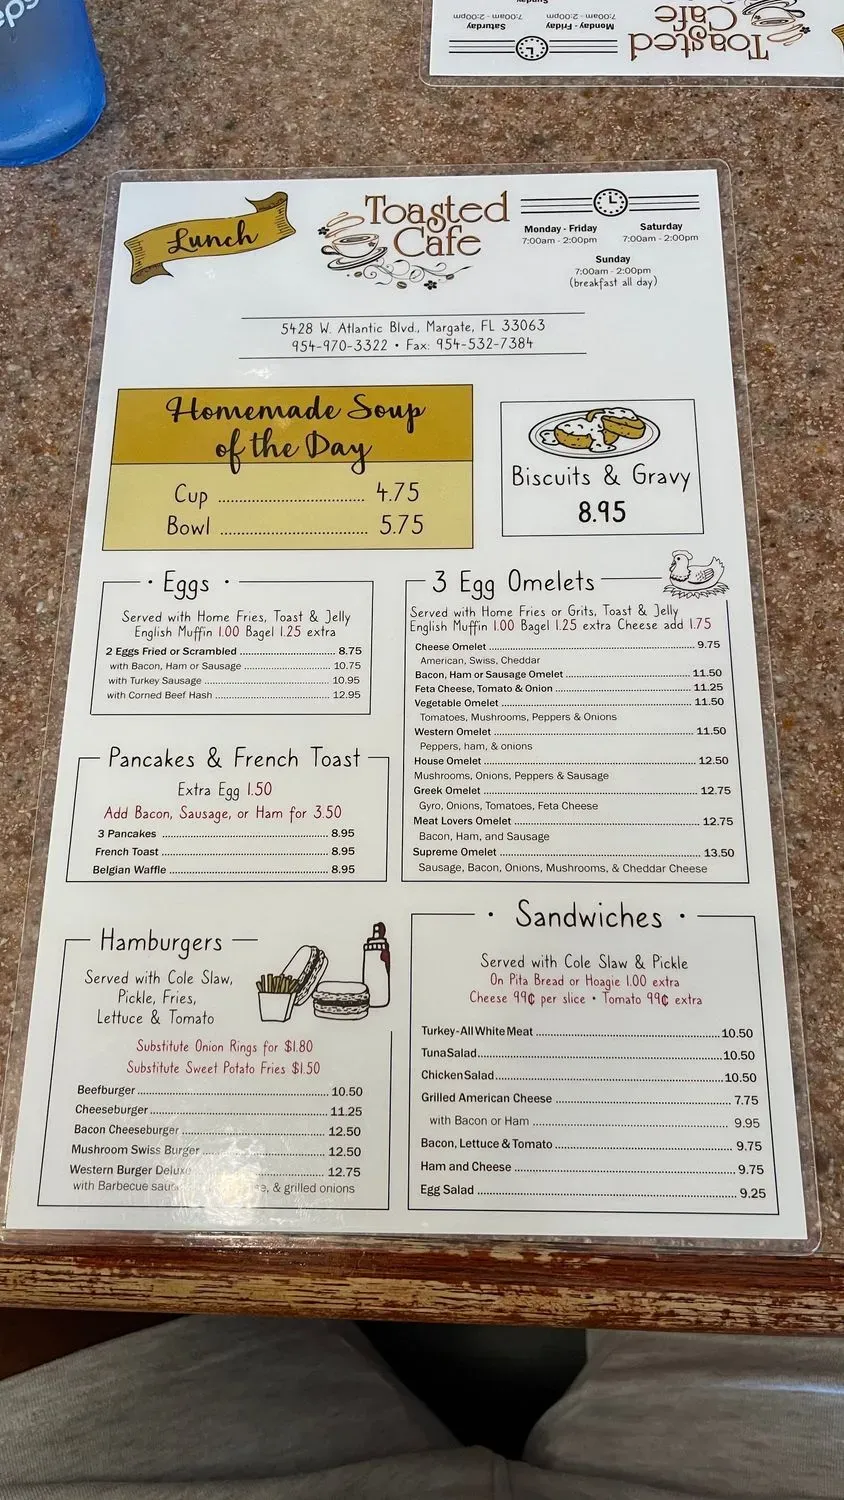 Toasted
Cafe
Monday - Friday
7:00am - 2:00pm
Saturday
7:00am - 2:00pm
Sunday
Lunch
Toasted
Cafe
Monday - Friday
7:00am - 2:00pm
Saturday
7:00am - 2:00pm
Sunday
7:00am - 2:00pm
(breakfast all day)
5428 W. Atlantic Blvd., Margate, FL 33063
954-970-3322 • Fax: 954-532-7384
Homemade Soup
of the Day
Cup ........ 4.75
Bowl ........ 5.75
Biscuits & Gravy
8.95
· Eggs ·
Served with Home Fries, Toast & Jelly
English Muffin 1.00 Bagel 1.25 extra
2 Eggs Fried or Scrambled ........ 8.75
with Bacon, Ham or Sausage ........ 10.75
with Turkey Sausage ........ 10.95
with Corned Beef Hash ........ 12.95
3 Egg Omelets
Served with Home Fries or Grits, Toast & Jelly
English Muffin 1.00 Bagel 1.25 extra Cheese add 1.75
Cheese Omelet ........ 9.75
American, Swiss, Cheddar
Bacon, Ham or Sausage Omelet ........ 11.50
Feta Cheese, Tomato & Onion ........ 11.25
Vegetable Omelet ........ 11.50
Tomatoes, Mushrooms, Peppers & Onions
Western Omelet ........ 11.50
Peppers, ham, & onions
House Omelet ........ 12.50
Mushrooms, Onions, Peppers & Sausage
Greek Omelet ........ 12.75
Gyro, Onions, Tomatoes, Feta Cheese
Meat Lovers Omelet ........ 12.75
Bacon, Ham, and Sausage
Supreme Omelet ........ 13.50
Sausage, Bacon, Onions, Mushrooms, & Cheddar Cheese
Pancakes & French Toast
Extra Egg 1.50
Add Bacon, Sausage, or Ham for 3.50
3 Pancakes ........ 8.95
French Toast ........ 8.95
Belgian Waffle ........ 8.95
Hamburgers
Served with Cole Slaw,
Pickle, Fries,
Lettuce & Tomato
Substitute Onion Rings for $1.80
Substitute Sweet Potato Fries $1.50
Beefburger ........ 10.50
Cheeseburger ........ 11.25
Bacon Cheeseburger ........ 12.50
Mushroom Swiss Burger ........ 12.50
Western Burger Deluxe ........ 12.75
with Barbecue & grilled onions
· Sandwiches ·
Served with Cole Slaw & Pickle
On Pita Bread or Hoagie 1.00 extra
Cheese 99¢ per slice • Tomato 99¢ extra
Turkey-All White Meat ........ 10.50
Tuna Salad ........ 10.50
Chicken Salad ........ 10.50
Grilled American Cheese ........ 7.75
with Bacon or Ham ........ 9.95
Bacon, Lettuce & Tomato ........ 9.75
Ham and Cheese ........ 9.75
Egg Salad ........ 9.25